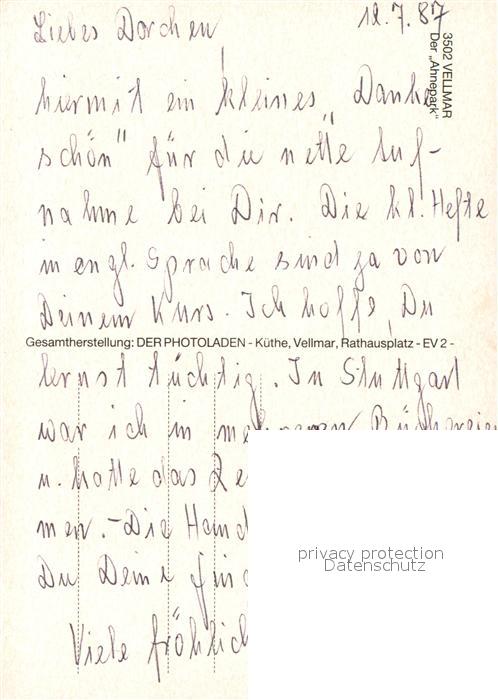 12.7.87
Liebes Dorchen,
3502 VELLMAR
Der „Ahnepark"
hiermit ein kleines „Danke
schön" für die nette Auf-
nahme bei Dir. Die kl. Hefte
in engl. Sprache sind ja von
Deinem Kurs. Ich hoffe, Du
Gesamtherstellung: DER PHOTOLADEN - Küthe, Vellmar, Rathausplatz - EV 2 -
lernst tüchtig. In Stuttgart
war ich in mehreren Büchereien
u. hatte das
men. - Die
Du Deine
Viele fröhlich
privacy protection
Datenschutz